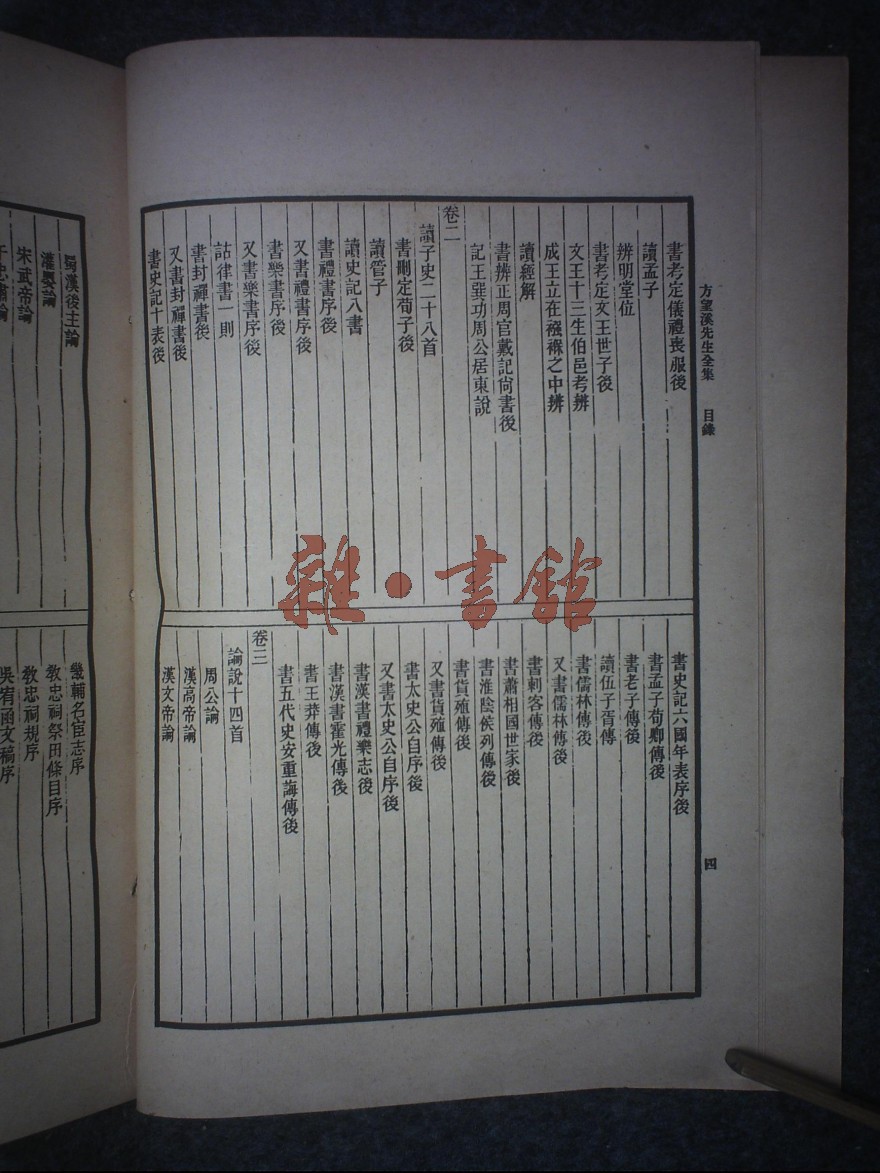 方望溪先生全集 目錄
四
書考定儀禮喪服後
讀孟子
辨明堂位
書考定文王世子後
文王十三生伯邑考辨
成王立在襁褓之中辨
讀經解
書辨正周官戴記尚書後
記王巽功周公居東說
卷二
讀子史二十八首
書刪定荀子後
讀管子
讀史記八書
書禮書序後
又書禮書序後
書樂書序後
又書樂書序後
詁律書一則
書封禪書後
又書封禪書後
書史記十表後
書史記六國年表序後
書孟子荀卿傳後
書老子傳後
讀伍子胥傳
書儒林傳後
又書儒林傳後
書刺客傳後
書蕭相國世家後
書淮陰侯列傳後
書貨殖傳後
又書貨殖傳後
書太史公自序後
又書太史公自序後
書漢書禮樂志後
書漢書霍光傳後
書王莽傳後
書五代史安重誨傳後
卷三
論說十四首
周公論
漢高帝論
漢文帝論
蜀漢後主論
宋武帝論
于忠肅論
畿輔名宦志序
教忠祠祭田條目序
教忠祠規序
吳宥函文稿序
雜·書館